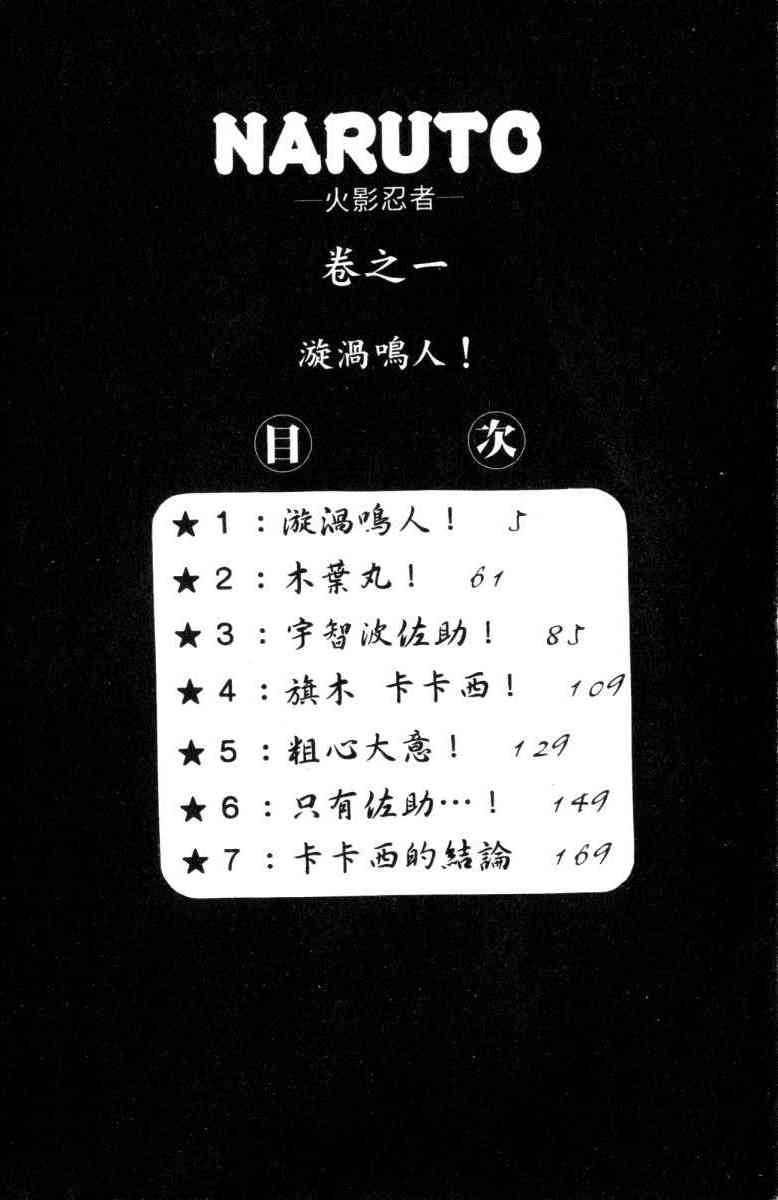 NARUTO
—火影忍者—
卷之一
漩渦鳴人！
目 次
★1：漩渦鳴人！ 5
★2：木葉丸！ 61
★3：宇智波佐助！ 85
★4：旗木 卡卡西！ 109
★5：粗心大意！ 129
★6：只有佐助…！ 149
★7：卡卡西的結論 169